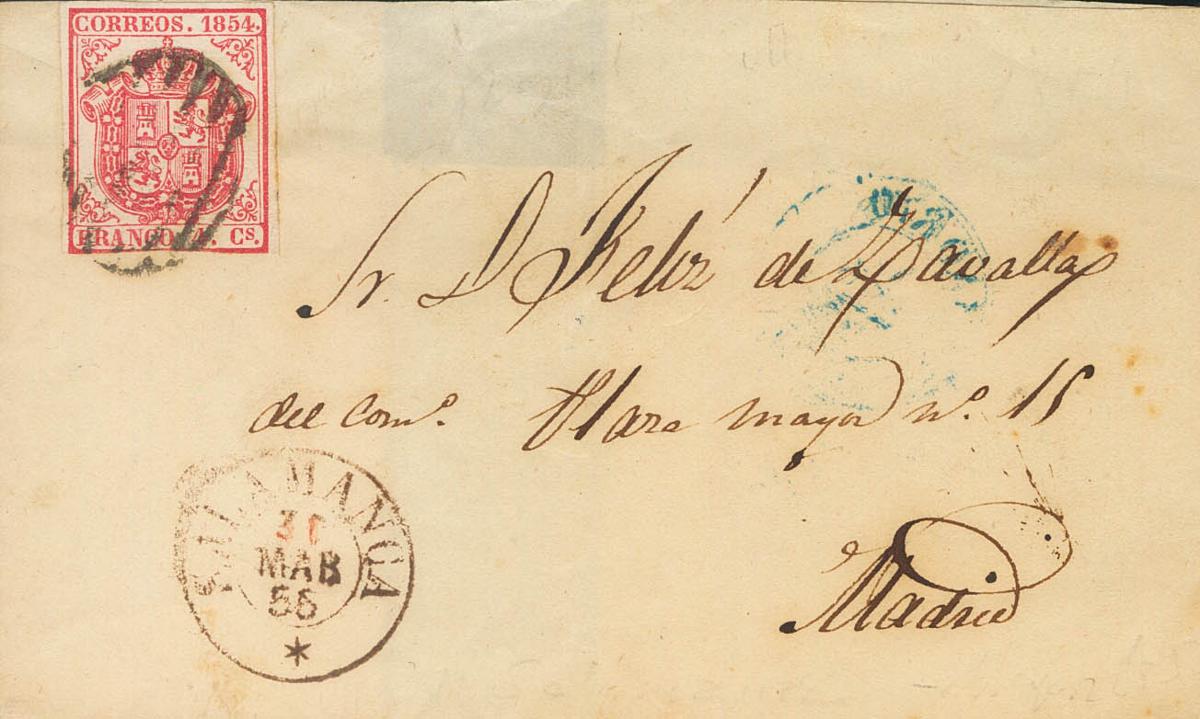 CORREOS. 1854.
FRANCO. 4. Cs.
Sr. D Feliz de Zavalla
del com.º Plaza mayor nº. 15
SALAMANCA
31
MAR
55
Madrid